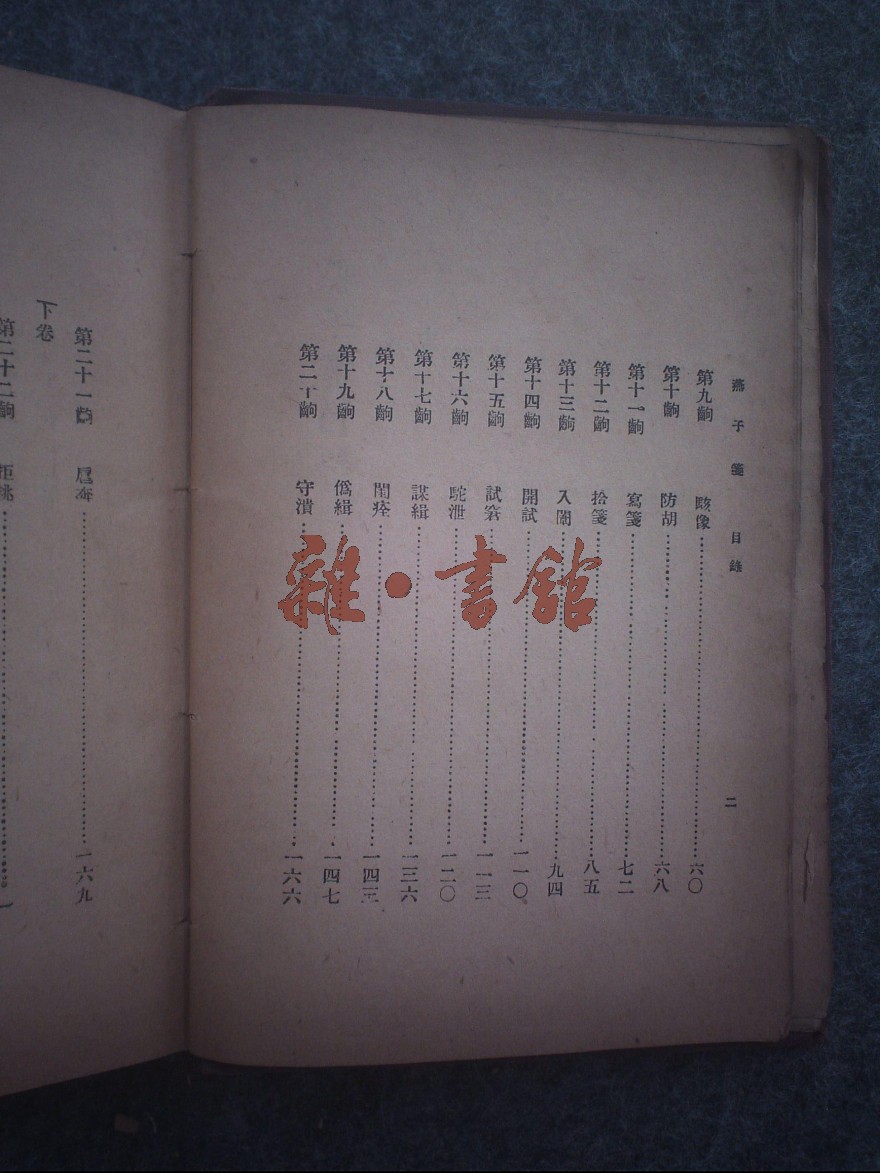 燕子箋 目錄 二
第九齣 駭像 六〇
第十齣 防胡 六八
第十一齣 寫箋 七二
第十二齣 拾箋 八五
第十三齣 入闈 九四
第十四齣 開試 一一〇
第十五齣 試窘 一一三
第十六齣 駝泄 一二〇
第十七齣 謀緝 一三六
第十八齣 閨痊 一四三
第十九齣 偽緝 一四七
第二十齣 守潰 一六六
第二十一齣 一六九
下卷
第二十二齣 拒挑
雜·書館